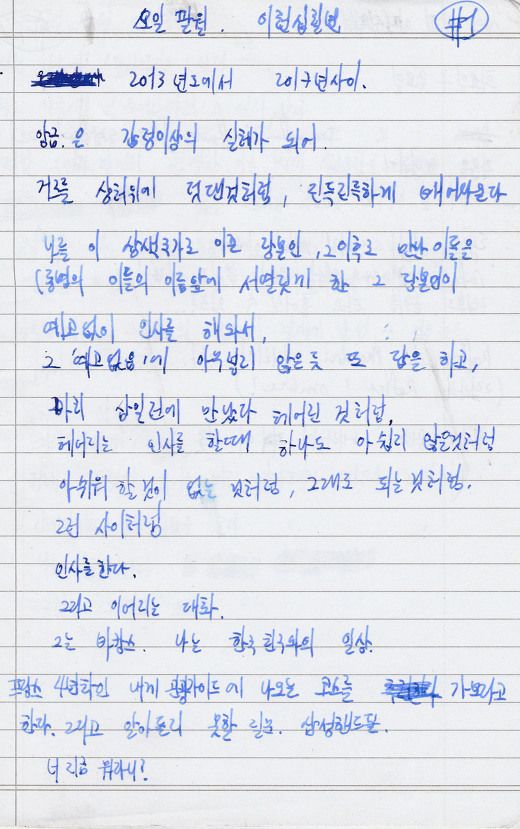 오일 팔월. 이천십칠년
#1
2013년도에서 2017년사이.
은 감정이상의 실체가 되어.
거즈를 상처위에 덧댄것처럼, 진득진득하게 배어나온다
나를 이 삼색국가로 이끈 장본인, 그이후로 만난 이들을
이들의 이름앞에 서열짓게 한 그 장본인이
예고없이 인사를 해와서,
그 '예고없음'에 아무렇지 않은듯 또 답을 하고,
마치 삼일전에 만났다 헤어린 것처럼,
헤어지는 인사를 할때 하나도 아쉽지 않을것처럼
아쉬워 할것이 없는 것처럼, 그대로 되는것처럼.
그런 사이처럼
인사를 한다.
그리고 이어지는 대화.
그는 바캉스. 나는 한국 친구와의 일상.
프랑스 4년차인 내게 관광가이드에 나오는 코스를 가보라고
한다. 그리고 알아듣지 못할 질문. 삼성핸드폰.
너 지금 뭐라니?